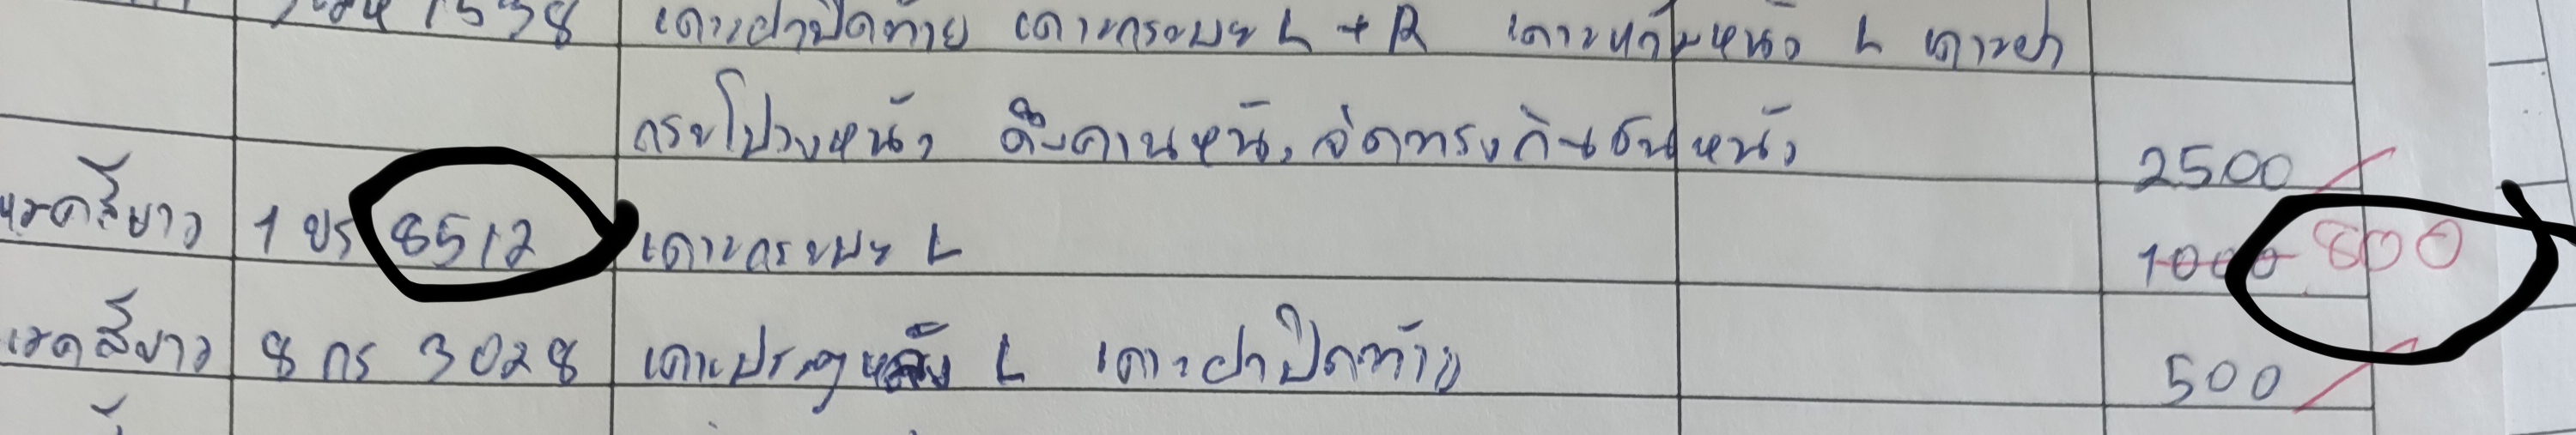 1538 เคาะฝาปิดท้าย เคาะกระบะ L + R เคาะแก้มหน้า L เคาะฝา
กระโปรงหน้า ดึงคานหน้า จัดทรงกันชนหน้า 2500
แคสีขาว 1 ขร 8512 เคาะกระบะ L 1000 800
แคสีขาว 8 กร 3028 เคาะประตูหลัง L เคาะฝาปิดท้าย 500